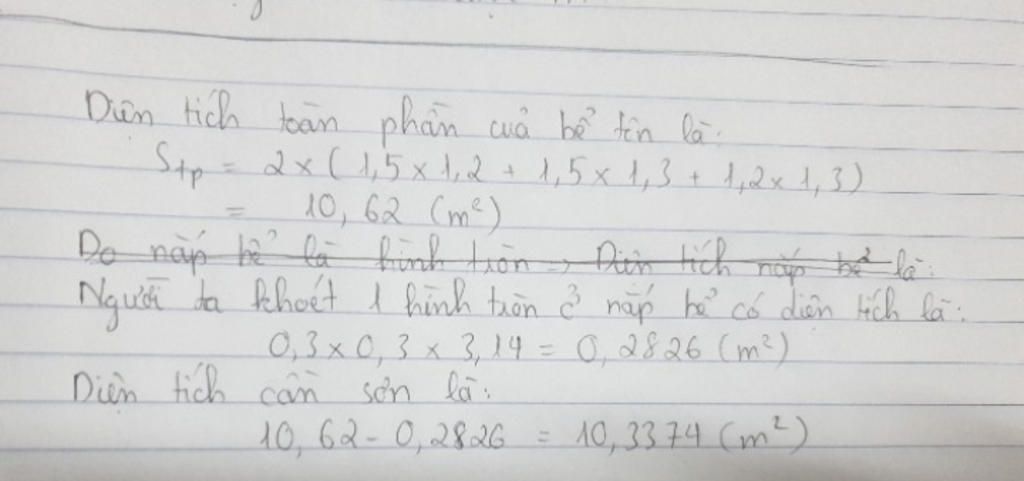 Diện tích toàn phần cuả bể tôn là:
Stp = 2 × ( 1,5 × 1,2 + 1,5 × 1,3 + 1,2 × 1,3 )
= 10,62 (m²)
Do nắp bể là hình tròn → Diện tích nắp bể là:
Người ta khoét 1 hình tròn ở nắp bể có diện tích là:
0,3 × 0,3 × 3,14 = 0,2826 (m²)
Diện tích cần sơn là:
10,62 - 0,2826 = 10,3374 (m²)